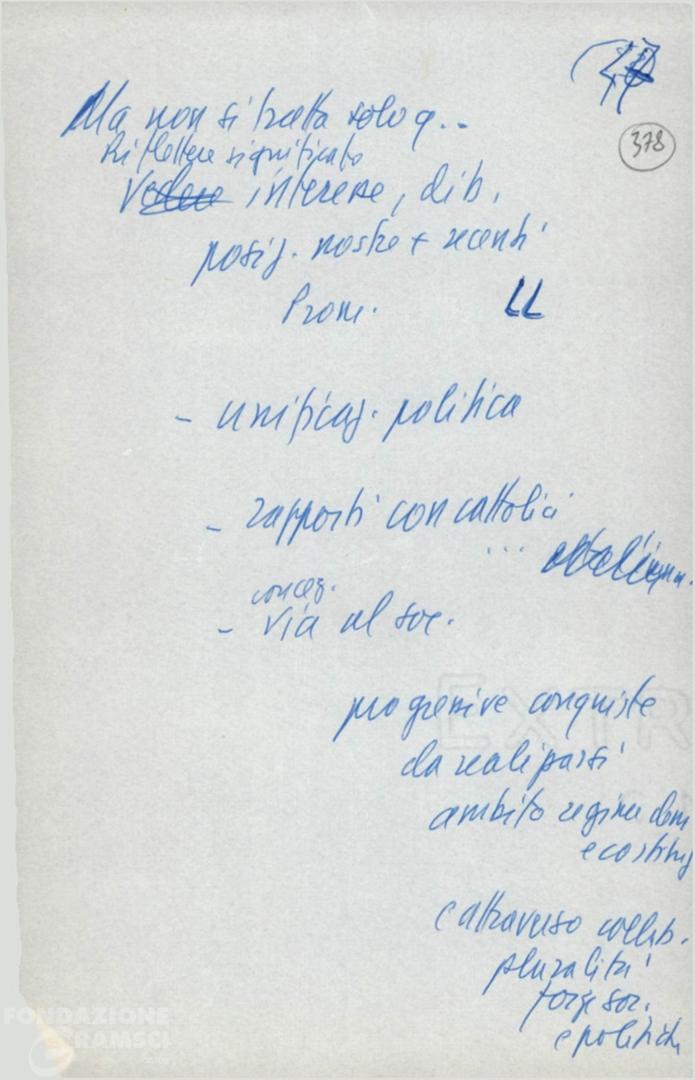 378
Ma non si tratta solo q..
Riflettere significato
Vedere interesse, dib.
posiz. nostre + recenti
Prom.
LL
- unificaz. politica
- rapporti con cattolici
...
concez.
- via al soc.
progressive conquiste
da realizzarsi
ambito regime dem
e costituz
e attraverso collab.
pluralità
forze soc.
e politiche
EXTR
FONDAZIONE
GRAMSCI